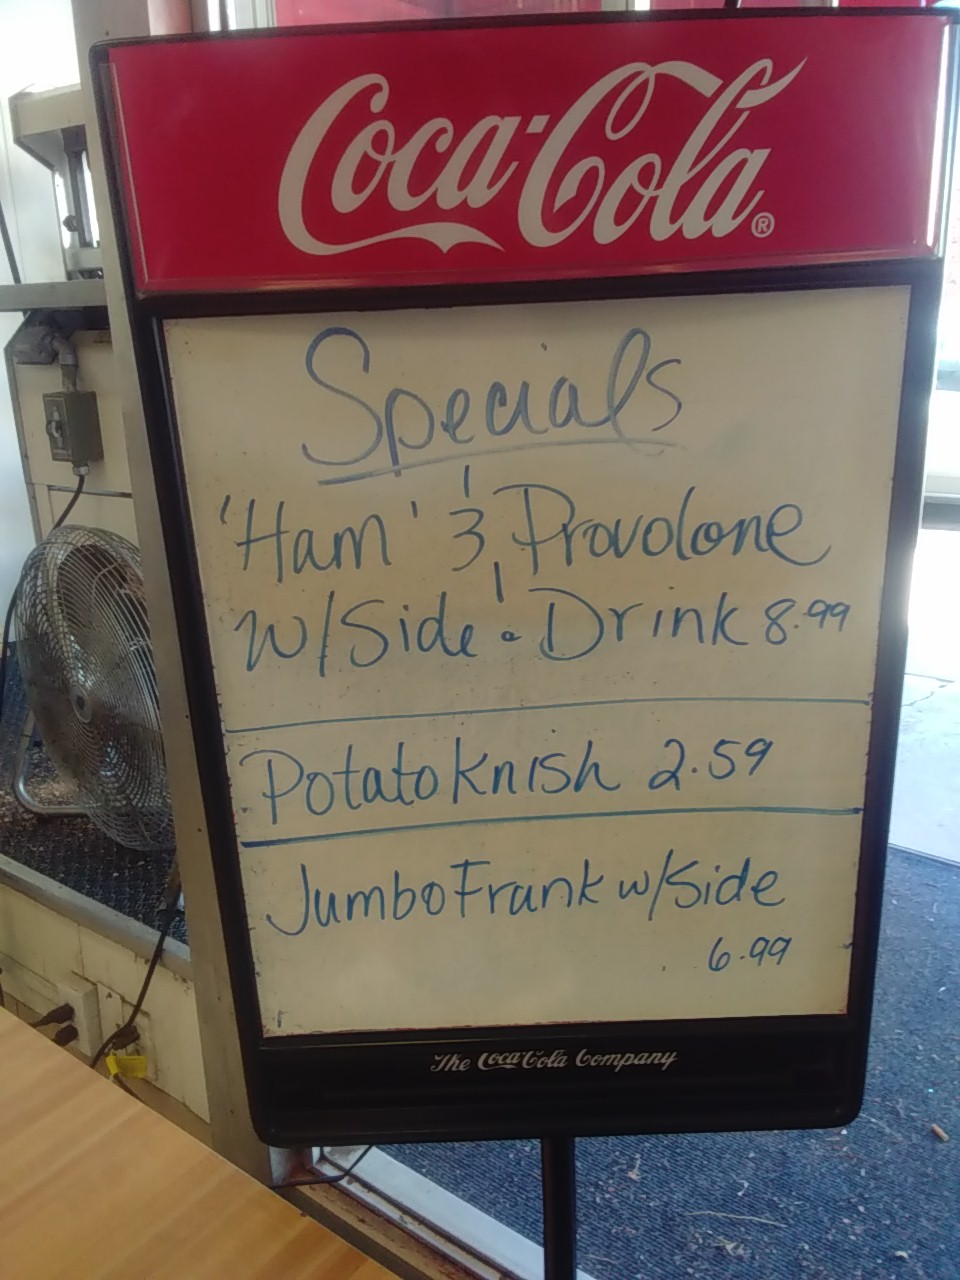 Coca-Cola®
Specials
'Ham' & Provolone
w/Side • Drink 8.99
Potato Knish 2.59
Jumbo Frank w/Side
6.99
The Coca-Cola Company